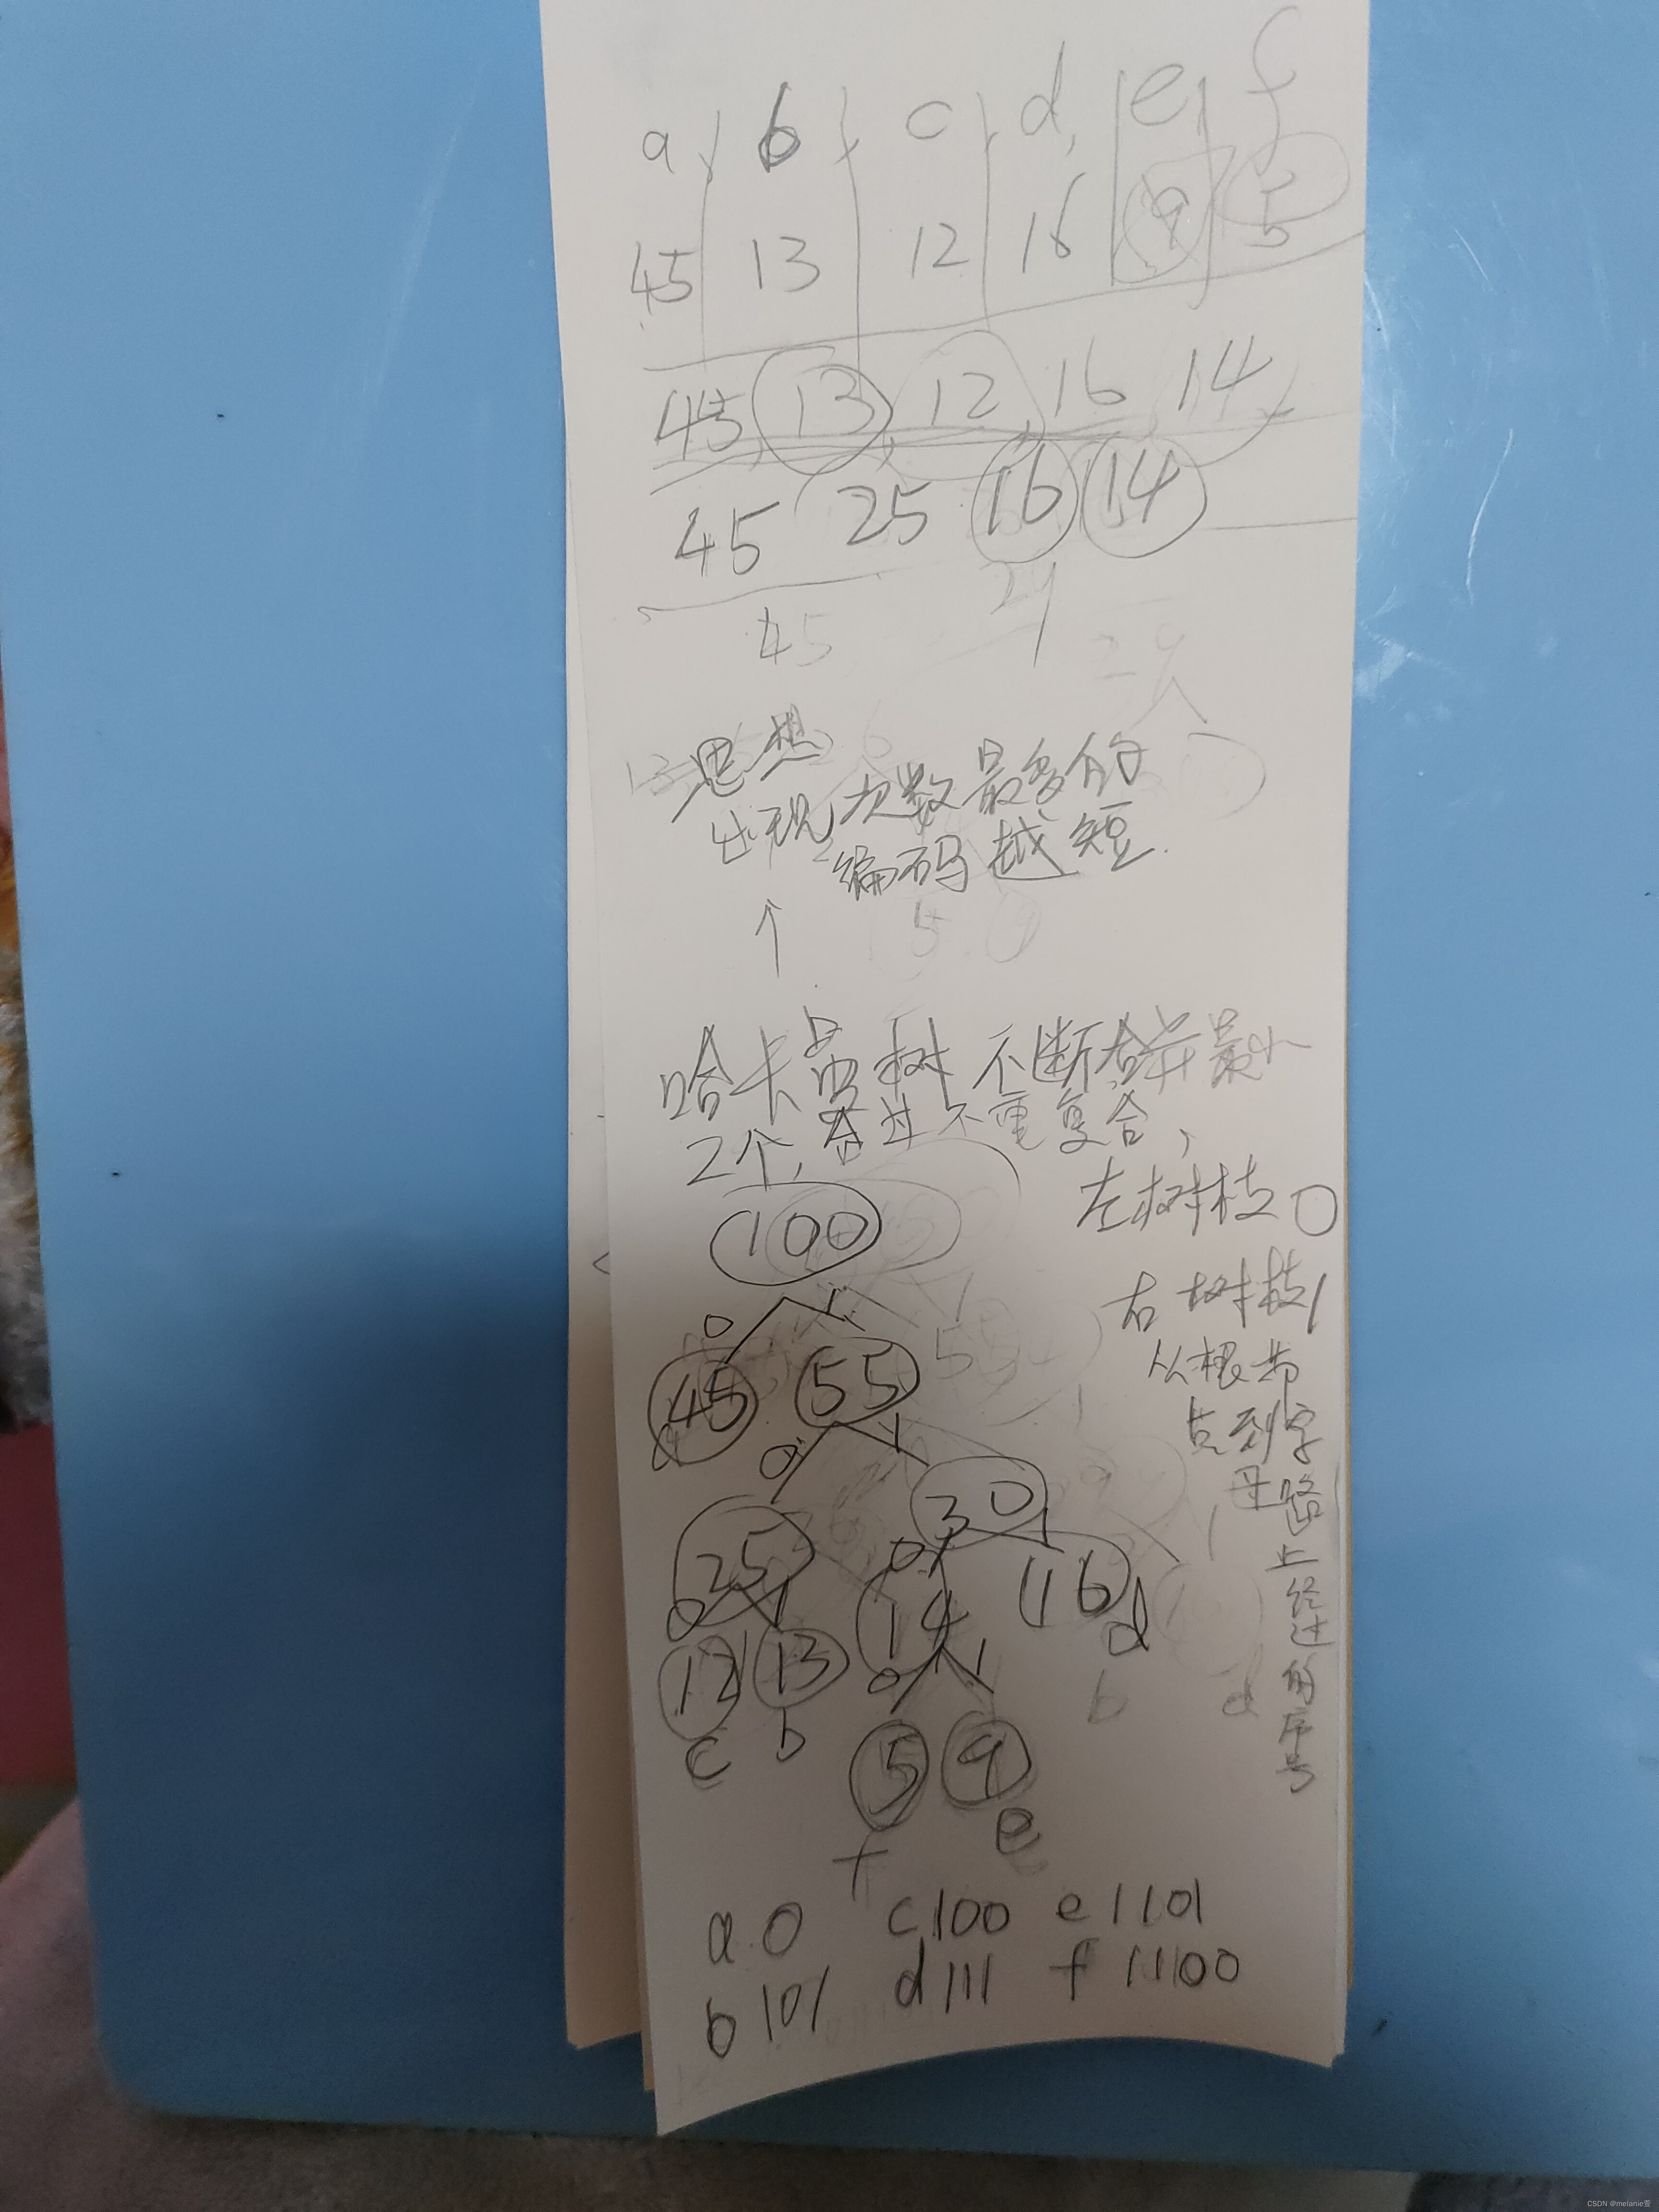 a b c d e f
45 13 12 16 9 5
45, 13, 12, 16, 14
45 25 16 14
45
29
思想
出现次数最多的
编码越短.
哈卡曼树 不断合并最小
2个, 合过不重复合,
左树枝0
右树枝1
从根节
点到字
母路
上经过
的序
号
100
0 1
45 55
a
0 1
25 30
0 1 0 1
12 13 14 16
c b d
0 1
5 9
f e
a 0 c 100 e 1101
b 101 d 111 f 11100
CSDN @melanie萱